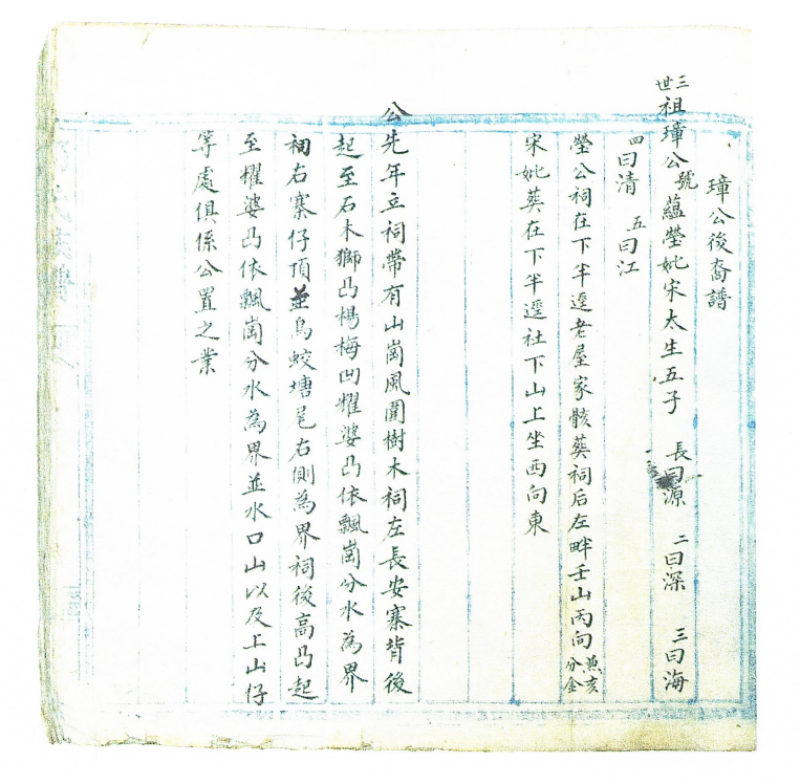 璋公後裔譜
三世祖璋公號蘊瑩妣宋太生五子 長曰源 二曰深 三曰海
四曰清 五曰江
瑩公祠在下半逕老屋家骸葬祠后左畔壬山丙向兼亥分金
宋妣葬在下半逕社下山上坐西向東
公先年立祠帶有山崗風圍樹木祠左長安寨背後
起至石木獅凸楊梅凹耀婆凸依飄崗分水為界
祠右寨仔頂並烏蛟塘尾右側為界祠後高凸起
至耀婆凸依飄崗分水為界並水口山以及上山仔
等處俱係公置之業